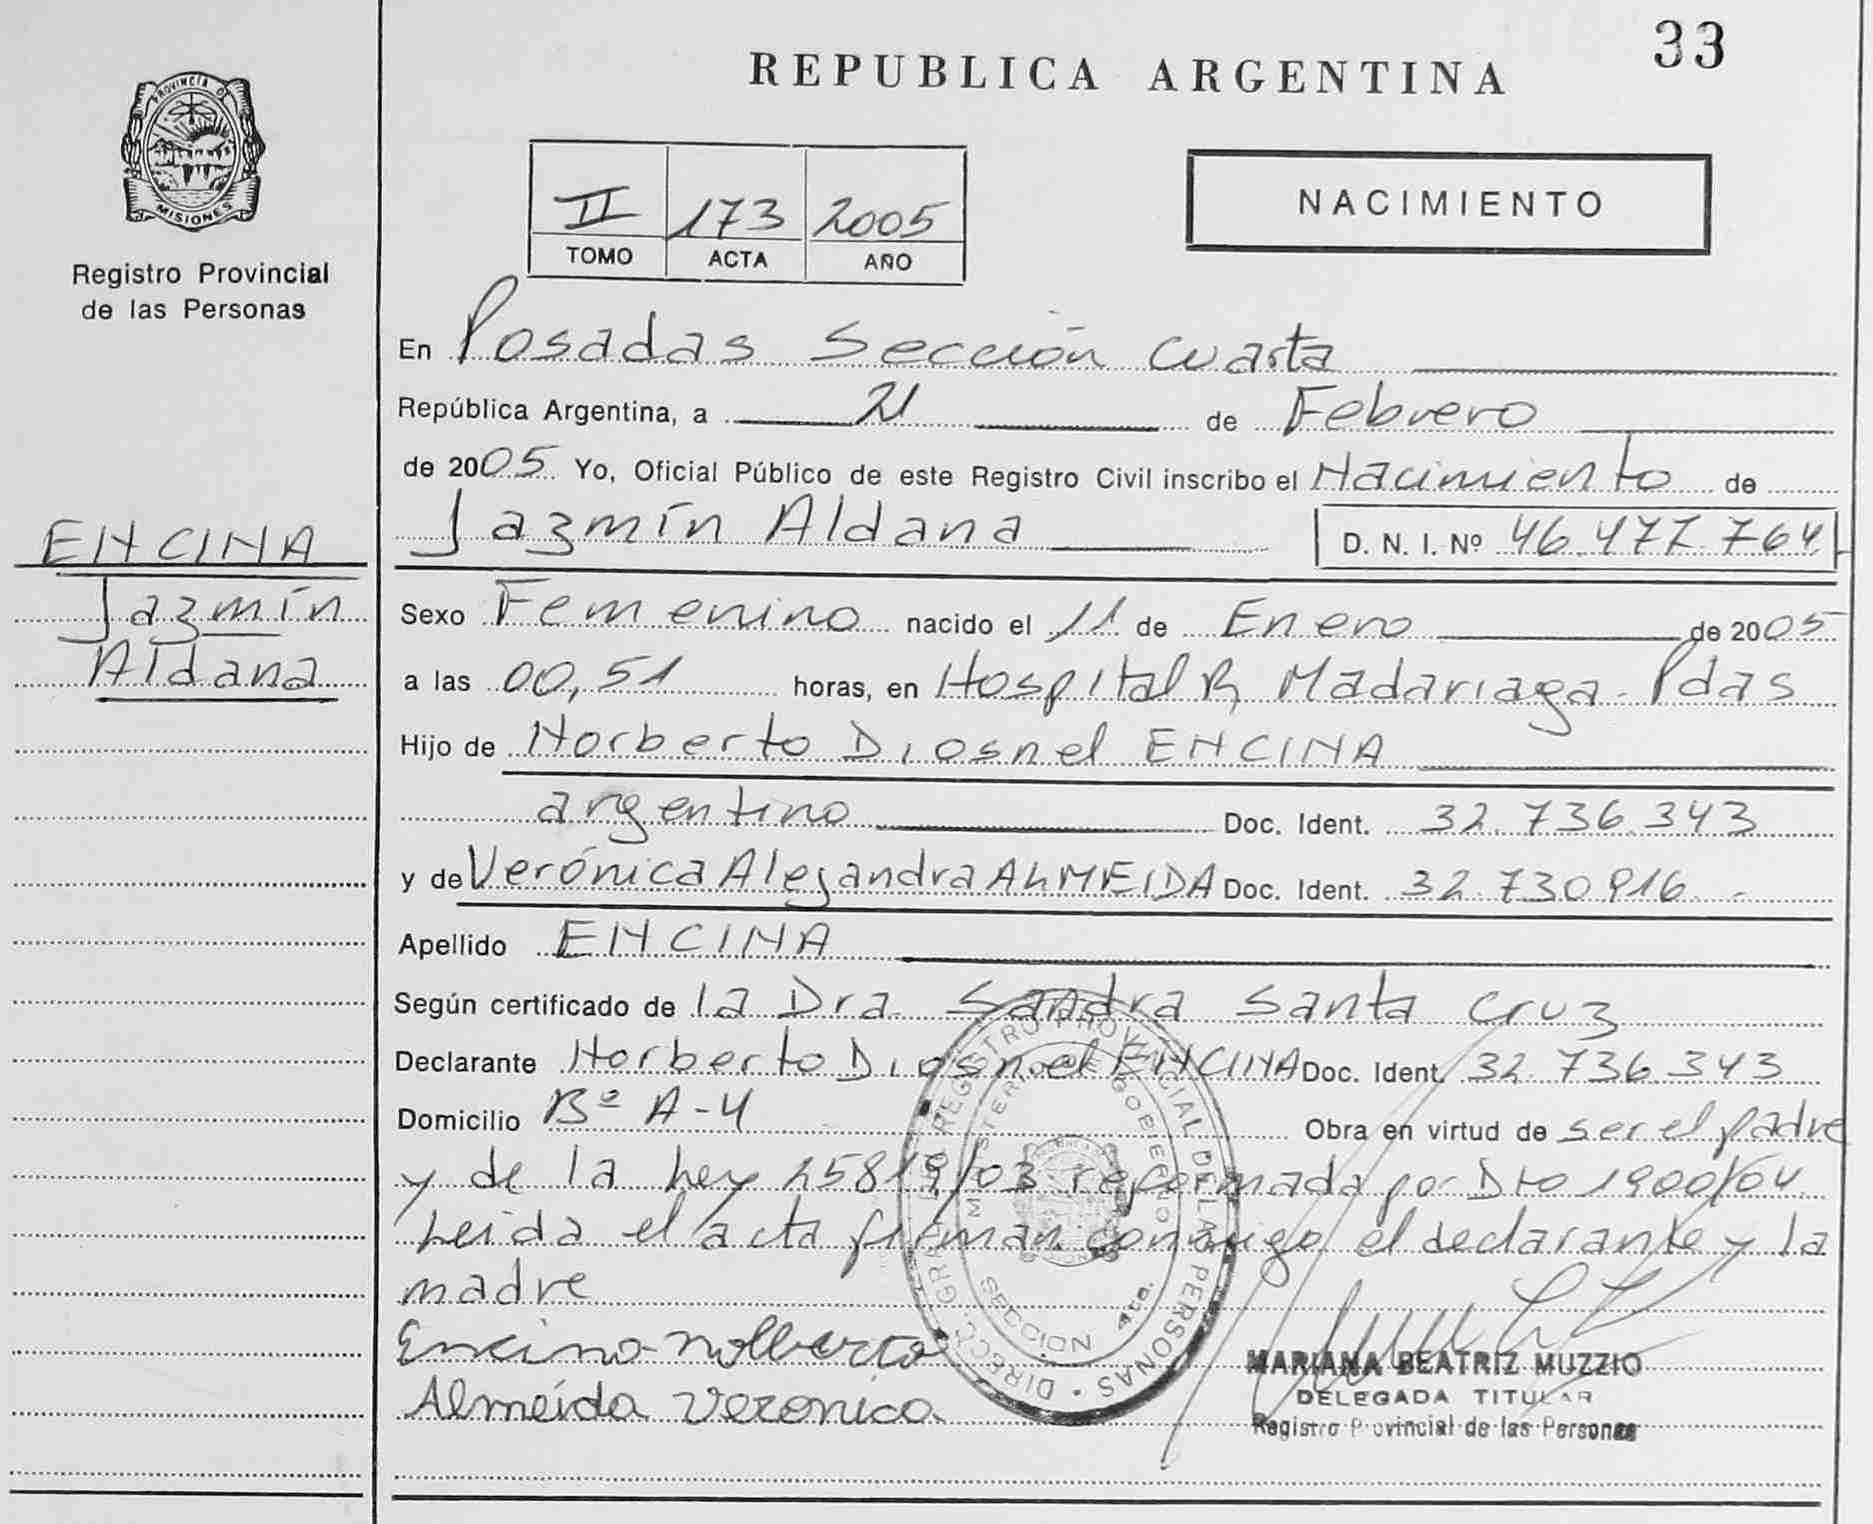 33
REPUBLICA ARGENTINA
PROVINCIA DE
MISIONES
Registro Provincial
de las Personas
II 173 2005
TOMO ACTA AÑO
NACIMIENTO
En Posadas Sección Cuarta
República Argentina, a 21 de Febrero
de 2005 Yo, Oficial Público de este Registro Civil inscribo el Nacimiento de
Jazmín Aldana D. N. I. Nº 46.477.764
ENCINA
Jazmín
Aldana
Sexo Femenino nacido el 11 de Enero de 2005
a las 00,51 horas, en Hospital R. Madariaga - Pdas
Hijo de Norberto Diosnel ENCINA
argentino Doc. Ident. 32.736.343
y de Verónica Alejandra ALMEIDA Doc. Ident. 32.730.916.-
Apellido ENCINA
Según certificado de la Dra. Sandra Santa Cruz
Declarante Norberto Diosnel ENCINA Doc. Ident. 32.736.343
Domicilio Bº A-4 Obra en virtud de ser el padre
y de la Ley 25819/03 reformada por Dto 1900/04.
Leida el acta firman conmigo el declarante y la
madre
Encina Nolberto
Almeida Veronica
DIRECC. GRAL. REGISTRO PROVINCIAL DE LAS PERSONAS
MINISTERIO DE GOBIERNO
SECCION 4ta.
MARIANA BEATRIZ MUZZIO
DELEGADA TITULAR
Registro Provincial de las Personas